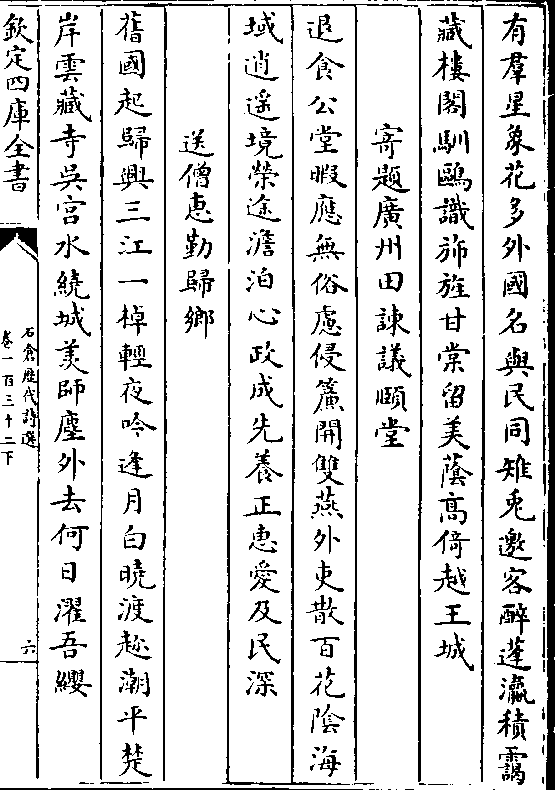 有羣星象花多外國名與民同雉兎邀客醉蓬瀛積靄
藏樓閣馴鷗識斾旌甘棠留美蔭髙倚越王城
寄題廣州田諫議頤堂
退食公堂暇應無俗慮侵簾開雙燕外吏散百花陰海
域逍遥境榮途澹泊心政成先養正惠愛及民深
送僧惠勤歸鄉
舊國起歸興三江一棹輕夜吟逢月白曉渡趂潮平楚
岸雲藏寺吳宮水繞城羙師塵外去何日濯吾纓
欽定四庫全書
石倉歷代詩選
卷一百三十二下
六